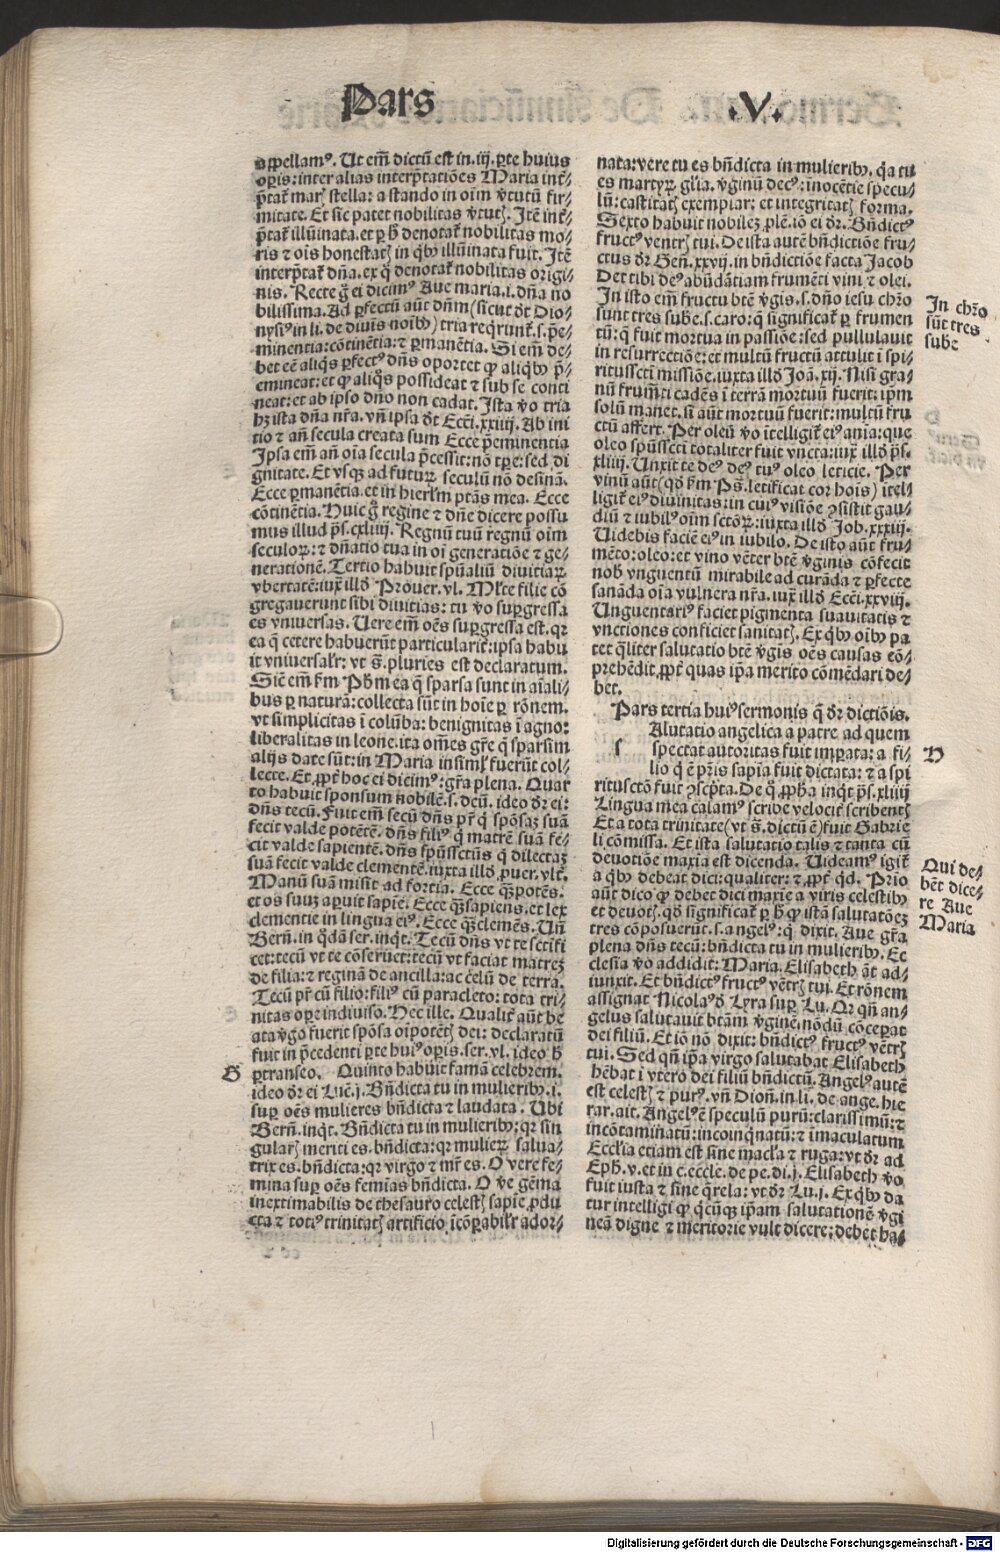 Pars .V.
appellamꝰ. Ut em̃ dictũ est in .iij. ꝑte huius
oꝑis: inter alias interp̃tatiões Maria int̃/
p̃tat᷑ marꝭ stella: a stando in oĩm v̾tutũ fir/
mitate. Et sic patet nobilitas v̾tutꝭ. Itẽ int̃/
p̃tat᷑ illũinata. et ꝑ h̾ denotat᷑ nobilitas mo/
ris ⁊ oĩs honestatꝭ in qͥbꝰ illũinata fuit. Itẽ
interp̃tat᷑ dña. ex q̃ denotat᷑ nobilitas origi/
nis. Recte g̾ ei dicimꝰ Aue maria .i. dña no
bilissima. Ad ꝑfectũ aut̃ dñm (sicut d̾t Dio/
nysiꝰ in li. de diuis noĩbꝰ) tria req̃runt᷑ .s. p̃e/
minentia: cõtinẽtia: ⁊ ꝑmanẽtia. Si em̃ de/
bet eẽ aliqͥs ꝑfectꝰ dñs oportet ꝙ aliqͥbꝰ p̃/
emineat: et ꝙ aliqͥs possideat ⁊ sub se conti
neat: et ab ipso dño non cadat. Ista v̾o tria
hꝫ ista dña nr̃a. vñ ipsa d̾t Ecci. xxiiij. Ab ini
tio ⁊ añ secula creata sum Ecce p̃eminentia
Ipsa em̃ añ oĩa secula p̃cessit: nõ tꝑe: sed di
gnitate. Et vsqꝫ ad futurꝝ seculũ nõ desinã.
Ecce ꝑmanẽtia. et in hierl̃m ptãs mea. Ecce
cõtinẽtia. Huic g̾ regine ⁊ dñe dicere possu
mus illud ps̃. cxliiij. Regnũ tuũ regnũ oĩm
seculoꝝ: ⁊ dñatio tua in oĩ generatiõe ⁊ ge/
nerationẽ. Tertio habuit spũaliũ diuitiaꝝ
vbertatẽ: iux̃ illd̾ Prouer. vl. Ml̃te filie cõ
gregauerunt sibi diuitias: tu v̾o suꝑgressa
es vniuersas. Uere em̃ oẽs suꝑgressa est. qꝛ
ea q̃ cetere habuerũt particularit᷑: ipsa habu
it vniuersalr̃: vt s̾. pluries est declaratum.
Sic̃ em̃ fm̃ Ph̃m ea q̃ sparsa sunt in aĩali/
bus ꝑ naturã: collecta sũt in hoĩe ꝑ rõnem.
vt simplicitas ĩ colũba: benignitas ĩ agno:
liberalitas in leone. ita om̃es gr̃e q̃ sparsim
alijs date sũt: in Maria insiml̃ fuerũt col/
lecte. Et ꝓpt̾ hoc ei dicimꝰ: gr̃a plena. Quar
to habuit sponsum nobilẽ .s. deũ. ideo d̾r ei:
dñs tecũ. Fuit em̃ secũ dñs pr̃ qͥ spõsaꝫ suã
fecit valde potẽtẽ. dñs filiꝰ qͥ matrẽ suã fe/
cit valde sapientẽ. dñs spũssctũs qͥ dilectaꝫ
suã fecit valde clementẽ. iuxta illd̾ ꝓuer. vlt̾.
Manũ suã misit ad fortia. Ecce qͣꝫpotẽs.
et os suuꝫ aꝑuit sapiẽ. Ecce qͣꝫsapiens. et lex
clementie in lingua eiꝰ. Ecce qͣꝫclemẽs. Uñ
Bern̾. in qͣdã ser. inqͥt. Tecũ dñs vt te sctifi
cet: tecũ vt te cõseruet: tecũ vt faciat matreꝫ
de filia: ⁊ reginã de ancilla: ac celũ de terra.
Tecũ pr̃ cũ filio: filiꝰ cũ paracleto: tota tri/
nitas oꝑe indiuiso. Hec ille. Qualit̾ aũt be
ata v̾go fuerit spõsa oĩpotẽtꝭ dei: declaratũ
fuit in p̃cedenti ꝑte huiꝰ oꝑis. ser. vl. ideo h̾
B
ꝑtranseo. Quinto habuit famã celebrem.
ideo d̾r ei Luc̃. j. Bñdicta tu in mulieribꝰ .i.
suꝑ oẽs mulieres bñdicta ⁊ laudata. Ubi
Bern̾. inqͥt. Bñdicta tu in mulieribꝰ: qꝛ sin
gularꝭ meriti es. bñdicta: qꝛ mulieꝝ salua/
trix es. bñdicta: qꝛ virgo ⁊ mr̃ es. O vere fe/
mina suꝑ oẽs femĩas bñdicta. O v̾e gẽma
inextimabilis de thesauro celestꝭ sapiẽ ꝓdu
cta ⁊ totiꝰ trinitatꝭ artificio ĩcõꝑabilr̃ ador/
nata: vere tu es bñdicta in mulieribꝰ. qͣa tu
es martyꝝ gl̃ia. v̾ginũ decꝰ: ĩnocẽtie specu/
lũ: castitatꝭ exemplar: et integritatꝭ forma.
Sexto habuit nobileꝫ ꝓlẽ. iõ ei d̾r. Bñdictꝰ
fructꝰ ventrꝭ tui. De ista autẽ bñdictiõe fru/
ctus d̾r Geñ. xxvij. in bñdictiõe facta Jacob
Det tibi deꝰ abũdãtiam frumẽti vini ⁊ olei.
In isto em̃ fructu btẽ v̾gis .s. dño iesu chr̃o
In chr̃o
sũt tres
sube
sunt tres sube .s. caro: q̃ significat᷑ ꝑ frumen
tũ: q̃ fuit mortua in passiõe: sed pullulauit
in resurrectiõe: et multũ fructũ attulit ĩ spi/
ritussctĩ missiõe. iuxta illd̾ Joã. xij. Nisi gra/
nũ frum̃ti cadẽs ĩ terrã mortuũ fuerit: ip̃m
solũ manet. si aũt mortuũ fuerit: multũ fru
ctũ affert. Per oleũ v̾o ĩtelligit᷑ eiꝰ aĩa: que
oleo spũsscti totaliter fuit vncta: iux̃ illd̾ ps̃.
xliiij. Unxit te deꝰ deꝰ tuꝰ oleo leticie. Per
vinũ aũt (qd̾ fm̃ Ps̃. letificat cor hoĩs) ĩtel/
ligit᷑ eiꝰ diuinitas: in cuiꝰ visiõe ꝯsistit gau/
diũ ⁊ iubilꝰ oĩm sctõꝝ: iuxta illd̾ Job. xxxiij.
Uidebis faciẽ eiꝰ in iubilo. De isto aũt fru/
mẽto: oleo: et vino vẽter btẽ v̾ginis cõfecit
nob̾ vnguentũ mirabile ad curãda ⁊ ꝑfecte
sanãda oĩa vulnera nr̃a. iux̃ illd̾ Ecci. xxviij.
Unguentariꝰ faciet pigmenta suauitatis ⁊
vnctiones conficiet sanitatꝭ. Ex qͥbꝰ oĩbꝰ pa
tet qͣliter salutatio btẽ v̾gis oẽs causas cõ/
prehẽdit. ꝓpt̾ quas ip̃a merito cõmẽdari de/
bet.
Pars tertia huiꝰ sermonis q̃ d̾r dictiõis.
D
s Alutatio angelica a patre ad quem
spectat autoritas fuit imꝑata: a fi/
lio qͥ ẽ pr̃is sapĩa fuit dictata: ⁊ a spi
ritusctõ fuit ꝯscp̃ta. De q̃ ꝓph̃a inqͥt ps̃. xliiij
Lingua mea calamꝰ scribe velocit᷑ scribentꝭ
Et a tota trinitate (vt s̾. dictũ ẽ) fuit Gabrie
li cõmissa. Et ista salutatio talis ⁊ tanta cũ
deuotiõe maxĩa est dicenda. Uideamꝰ igit᷑
Qui de/
bẽt dice/
re Aue
Maria
a qͥbꝰ debeat dici: qualiter: ⁊ ꝓpt̾ qͥd. Prĩo
aũt dico ꝙ debet dici maxĩe a viris celestibꝰ
et deuotꝭ. qd̾ significat᷑ ꝑ h̾ ꝙ istã salutatõeꝫ
tres cõposuerũt .s. angelꝰ: qͥ dixit. Aue gr̃a
plena dñs tecũ: bñdicta tu in mulieribꝰ. Ec
clesĩa v̾o addidit: Maria. Elisabeth aũt ad/
iunxit. Et bñdictꝰ fructꝰ vẽtrꝭ tui. Et rõnem
assignat Nicolaꝰ d̾ Lyra suꝑ Lu. Qꝛ qñ an/
gelus salutauit btãm v̾ginẽ, nõdũ cõceꝑat
dei filiũ. Et iõ nõ dixit: bñdictꝰ fructꝰ vẽtrꝭ
tui. Sed qñ ip̃a virgo salutabat Elisabeth
hẽbat ĩ vtero dei filiũ bñdictũ. Angelꝰ autẽ
est celestꝭ ⁊ purꝰ. vñ Dioñ. in li. de ange. hie
rar. ait. Angelꝰ ẽ speculũ purũ: clarissimũ: ⁊
incõtaminatũ: incoinqͥnatũ: ⁊ ĩmaculatum
Eccl̃ia etiam est sine macl̃a ⁊ ruga: vt d̾r ad
Eph̃. v. et in c. eccle. de pe. di. j. Elisabeth v̾o
fuit iusta ⁊ sine q̃rela: vt d̾r Lu. j. Ex qͥbꝰ da
tur intelligi ꝙ qͥcũqꝫ ip̃am salutationẽ v̾gi
neã digne ⁊ meritorie vult dicere: debet ha/
Digitalisierung gefördert durch die Deutsche Forschungsgemeinschaft - DFG